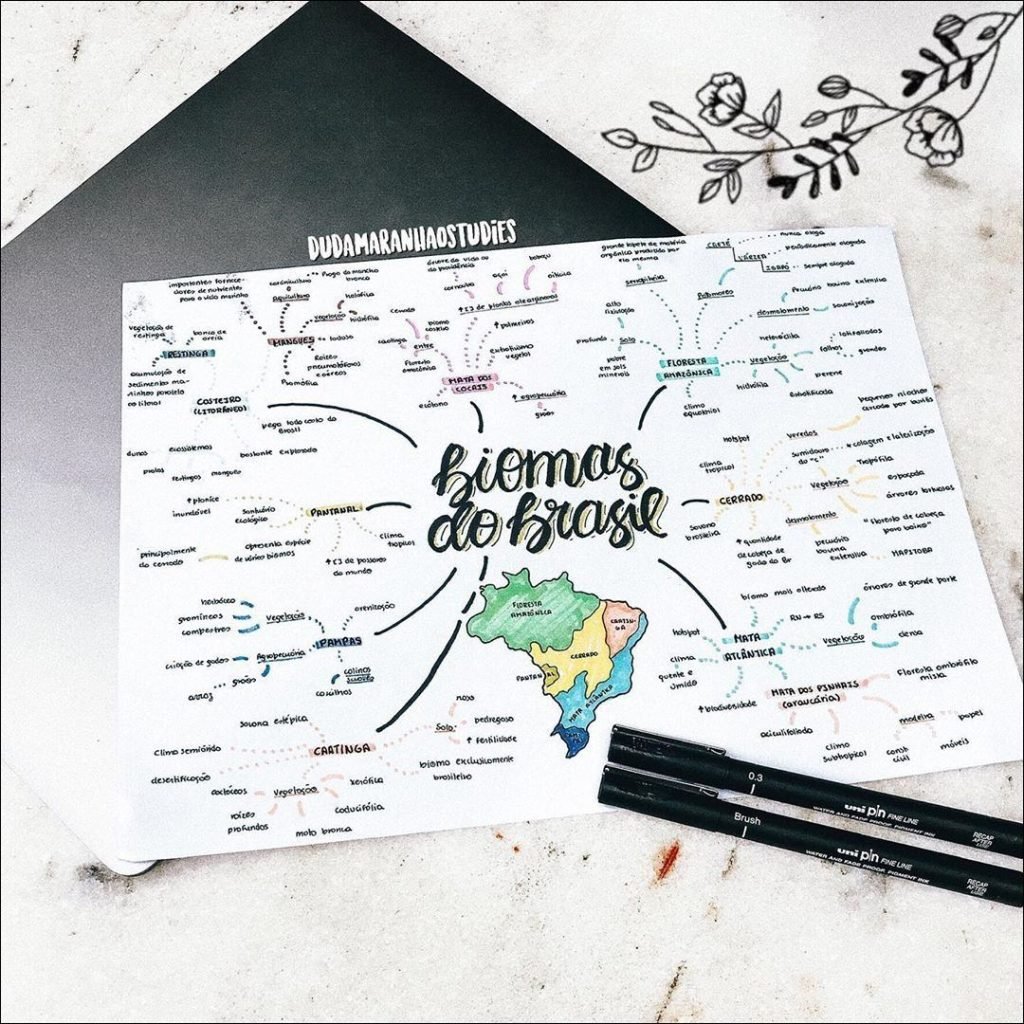 DUDAMARANHAOSTUDIES
biomas
do brasil
MANGUES
importantes fornece-
dores de nutrientes
para a vida marinha
aquicultura
vegetação
halófita
hidrófila
lodoso
Raízes
pneumatóforos
e aéreas
RESTINGA
vegetação de
restinga
banco de
areia
acumulação de
sedimentos
COSTEIRO
(LITORÂNEO)
pega todo costa do
Brasil
bastante explorada
ecossistemas
dunas
praias
restingas
mangues
MATA DOS
COCAIS
árvore da vida ou
da providência
carnaúba
açaí
babaçu
oiticica
↑ palmeiras
extrativismo
vegetal
↑ agropecuária
grãos
ecótono
entre
cerrado
caatinga
floresta
amazônica
FLORESTA
AMAZÔNICA
grande tapete de matéria
orgânica produzida por
ela mesma
serrapilheira
alta
profundo
Solo
pobre
em sais
minerais
clima
equatorial
Patamares
VÁRZEA
IGAPÓ
nunca alaga
periodicamente alagada
sempre alagada
desmatamento
Pecuária bovina extensiva
vegetação
folhas
latifoliadas
grandes
perene
estratificada
hidrófila
CERRADO
hotspot
clima
tropical
Savana
brasileira
veredas
pequenos riachos
cercado por buritis
Sumidouro
do "C"
Vegetação
Tropófila
espaçada
árvores tortuosas
desmatamento
pecuária
bovina
extensiva
MAPITOBA
↑ quantidade
de cabeça de
gado do Br
PANTANAL
↑ planície
inundável
Santuário
ecológico
clima
tropical
apresenta espécie
de vários biomas
principalmente
do cerrado
↑ □ de pássaros
do mundo
PAMPAS
Vegetação
herbácea
gramíneas
campestres
arenização
Agropecuária
criação de gados
grãos
arroz
colinas
suaves
coxilhas
CAATINGA
savana estépica
Clima semiárido
desertificação
Vegetação
cactáceas
raízes
profundas
mata branca
caducifólia
xerófita
Solo
raso
pedregoso
↑ fertilidade
bioma exclusivamente
brasileiro
MATA
ATLÂNTICA
bioma mais alterado
RN → RS
hotspot
clima
quente e
úmido
↑ biodiversidade
Vegetação
árvores de grande porte
ombrófila
densa
MATA DOS PINHAIS
(araucária)
Floresta ombrófila
mista
aciculifoliada
Clima
Subtropical
madeira
papel
móveis
const
civil
FLORESTA
AMAZÔNICA
CAATIN-
GA
CERRADO
PANTANAL
MATA ATLÂNTICA
0.3
uni pin FINE LINE
WATER AND FADE PROOF, PIGMENT INK
RECAP
AFTER
USE
Brush
uni pin FINE LINE
WATER AND FADE PROOF, PIGMENT INK
RECAP
AFTER
USE